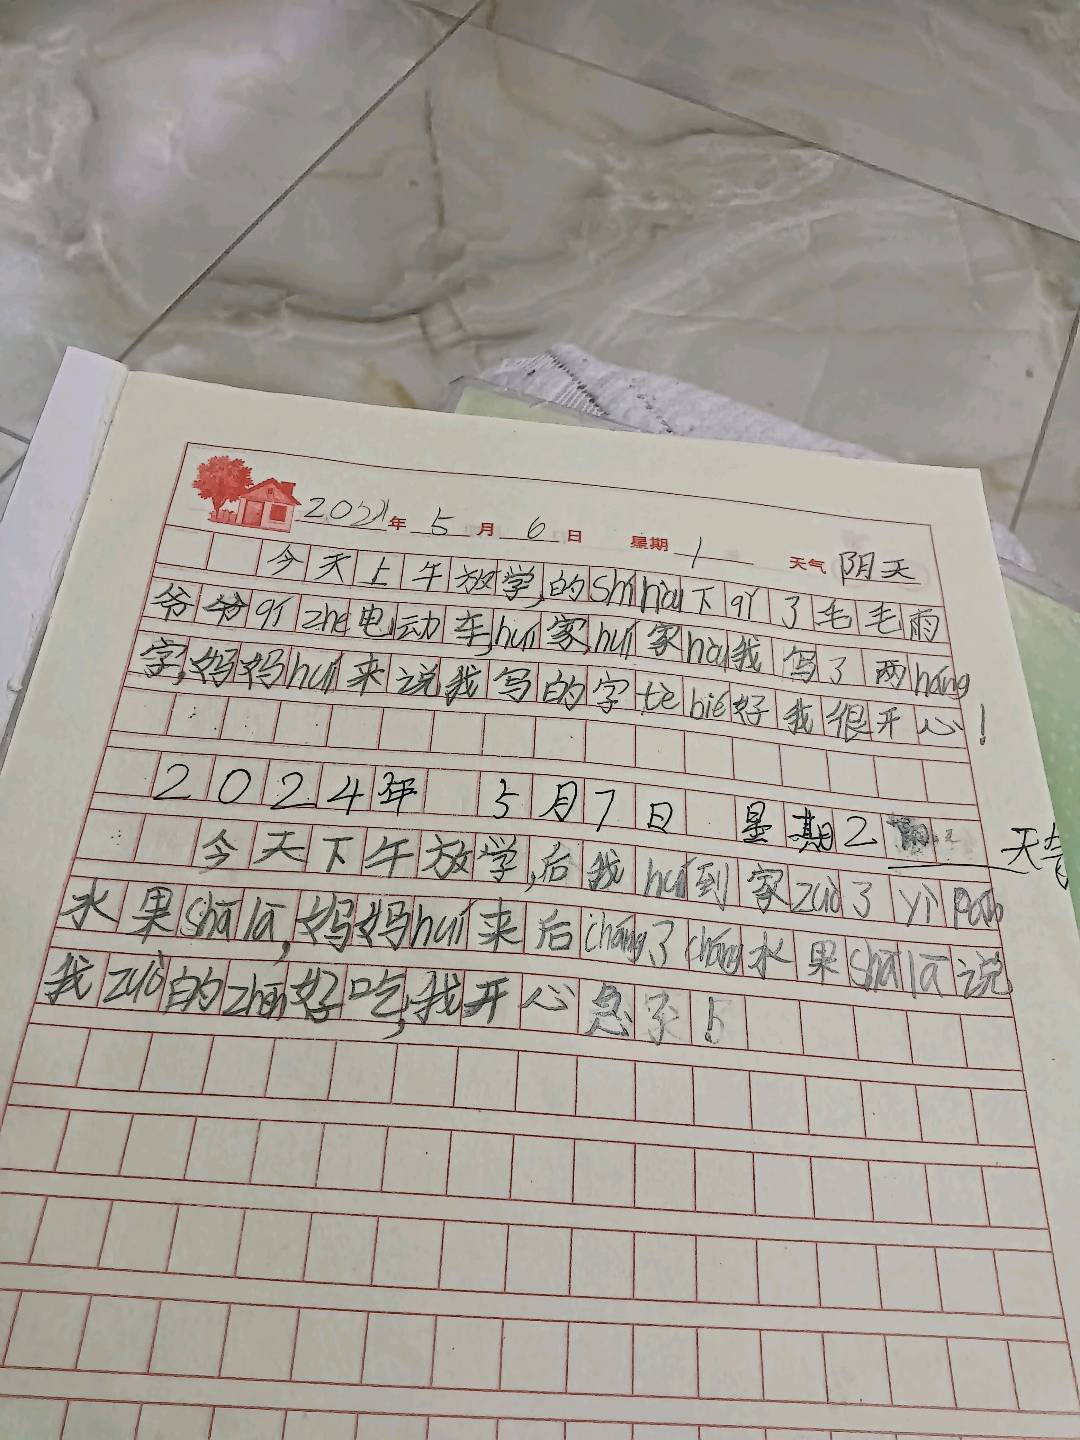 2024年 5月 6日 星期 1 天气 阴天
今天上午放学,的shí hòu下qǐ了毛毛雨
爷爷qí zhe电动车,huí家,huí家hòu我写了两háng
字,妈妈huí来说我写的字tè bié好我很开心!
2024年 5月7日 星期2 天
今天下午放学,后我huí到家zuò了yì pán
水果shā lā,妈妈huí来后cháng了cháng水果shā lā说
我zuò的zhēn好吃,我开心急了!